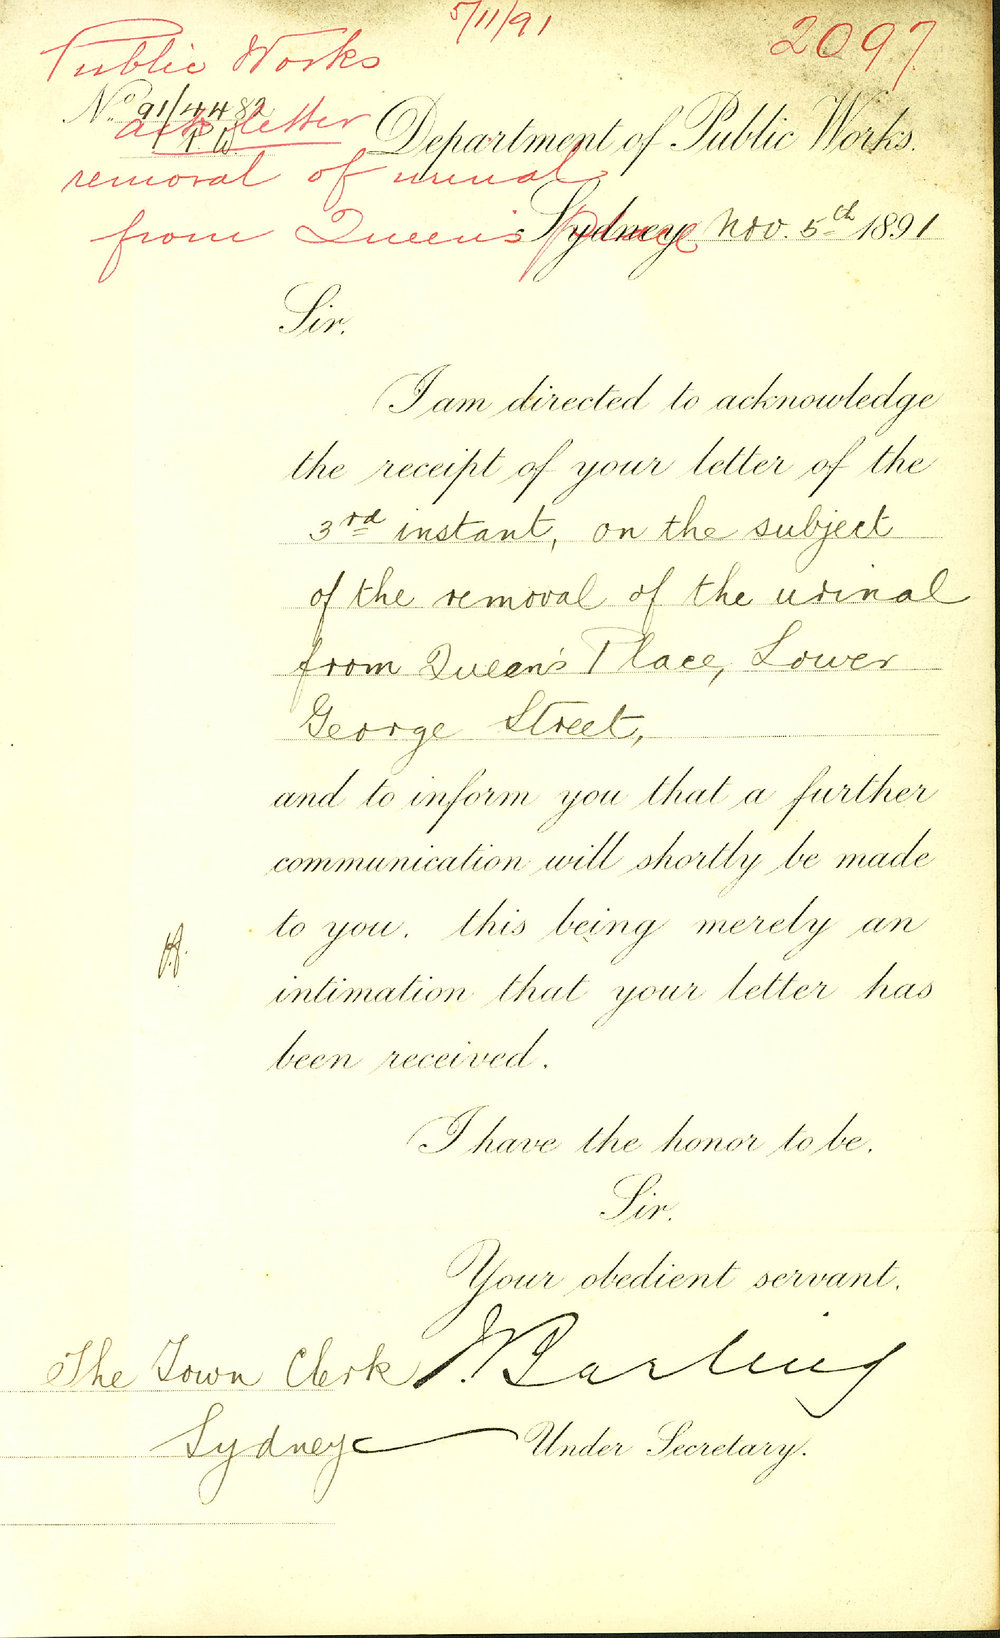 5/11/91
2097
Public Works
No. 91/4482
P W
ack letter
Department of Public Works.
removal of urinal
from Queen's Place
Sydney, Nov. 5th 1891
Sir.
I am directed to acknowledge
the receipt of your letter of the
3rd instant, on the subject
of the removal of the urinal
from Queen's Place, Lower
George Street,
and to inform you that a further
communication will shortly be made
to you. this being merely an
intimation that your letter has
been received.
I have the honor to be.
Sir.
Your obedient servant.
The Town Clerk
J. Barling
Sydney
Under Secretary.